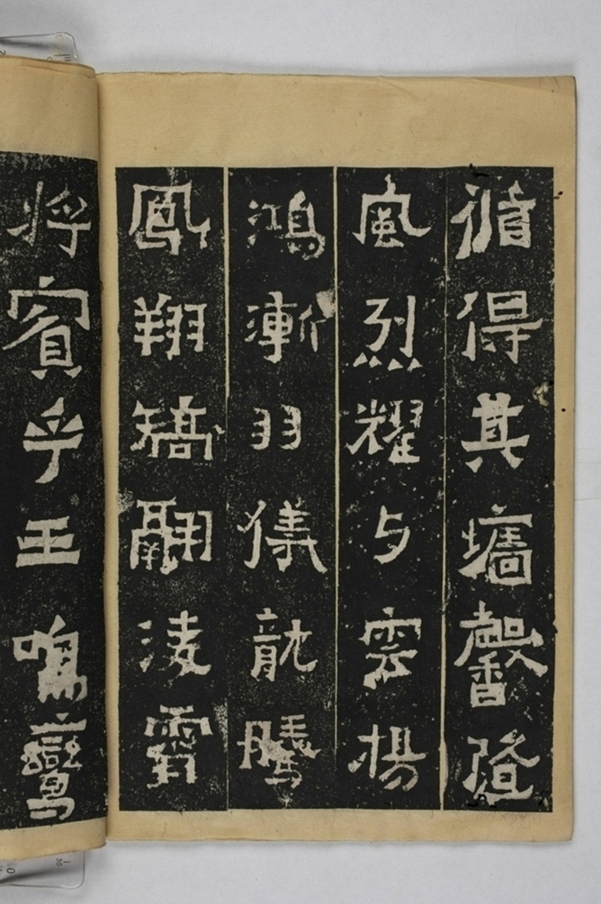 循得其墻馨隆
風烈耀与雲揚
鴻漸羽儀龍騰
鳳翔矯翮淩霄
將賓乎王鳴鸞